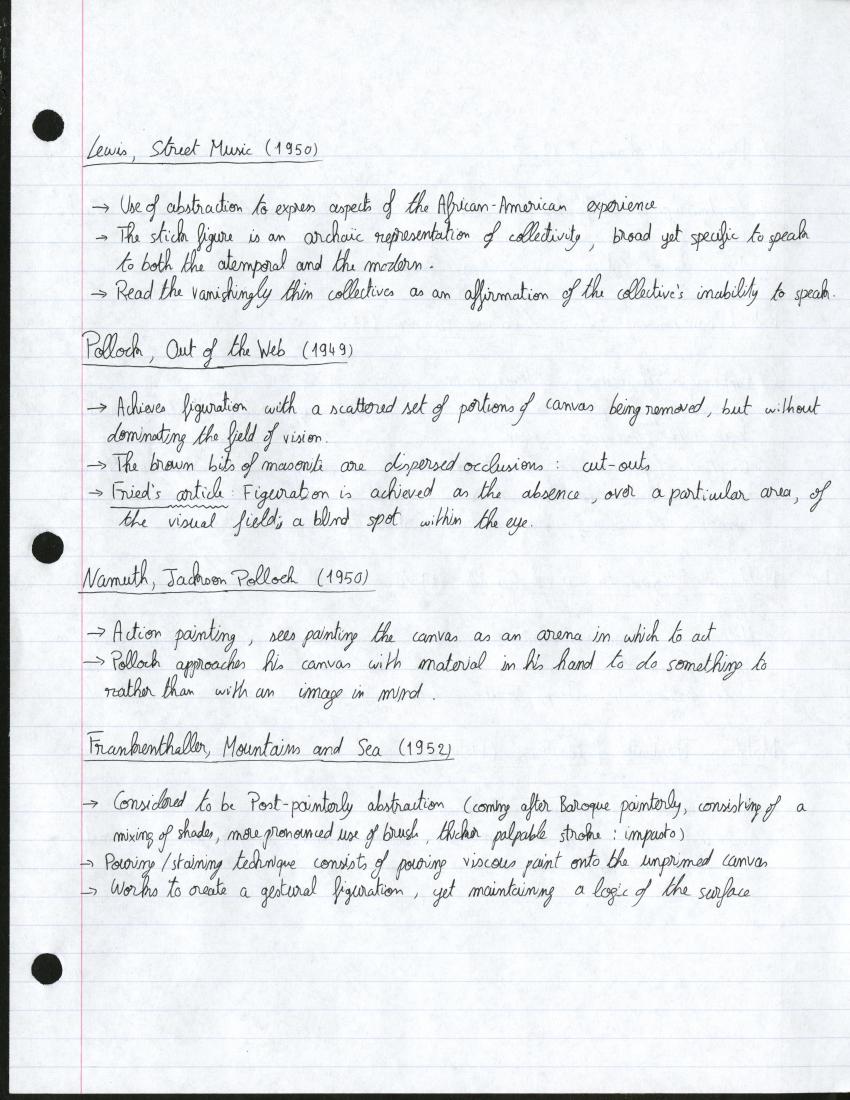 Lewis, Street Music (1950)
→ Use of abstraction to express aspects of the African-American experience
→ The stick figure is an archaic representation of collectivity, broad yet specific to speak
to both the atemporal and the modern.
→ Read the vanishingly thin collectives as an affirmation of the collective's inability to speak.
Pollock, Out of the Web (1949)
→ Achieves figuration with a scattered set of portions of canvas being removed, but without
dominating the field of vision.
→ The brown bits of masonite are dispersed occlusions : cut-outs
→ Fried's article : Figuration is achieved as the absence, over a particular area, of
the visual field; a blind spot within the eye.
Namuth, Jackson Pollock (1950)
→ Action painting, sees painting the canvas as an arena in which to act
→ Pollock approaches his canvas with material in his hand to do something to
rather than with an image in mind.
Frankenthaller, Mountains and Sea (1952)
→ Considered to be Post-painterly abstraction (coming after Baroque painterly, consisting of a
mixing of shades, more pronounced use of brush, thicker palpable stroke : impasto)
→ Pouring/staining technique consists of pouring viscous paint onto the unprimed canvas
→ Works to create a gestural figuration, yet maintaining a logic of the surface